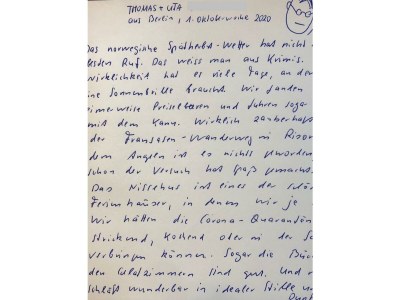 THOMAS + UTA
aus Berlin, 1. Oktoberwoche 2020
Das norwegische Spätherbst-Wetter hat nicht
besten Ruf. Das weiss man aus Krimis.
Wirklichkeit hat es viele Tage, an den
ine Sonnenbrille braucht. Wir fanden
eimerweise Preiselbeeren und fuhren sogar
mit dem Kanu. Wirklich zauberhaft
der Wanderweg in Risør
dem Angeln ist es nichts geworden
schon der Versuch hat Spaß gemacht.
Das Nissehus ist eines der schön
Ferienhäuser, in denen wir je
Wir hätten die Corona-Quarantäne
strickend, kochend oder in der Sa
verbringen können. Sogar die Büc
den Schlafzimmern sind gut. Und
schläft wunderbar in idealer Stille und